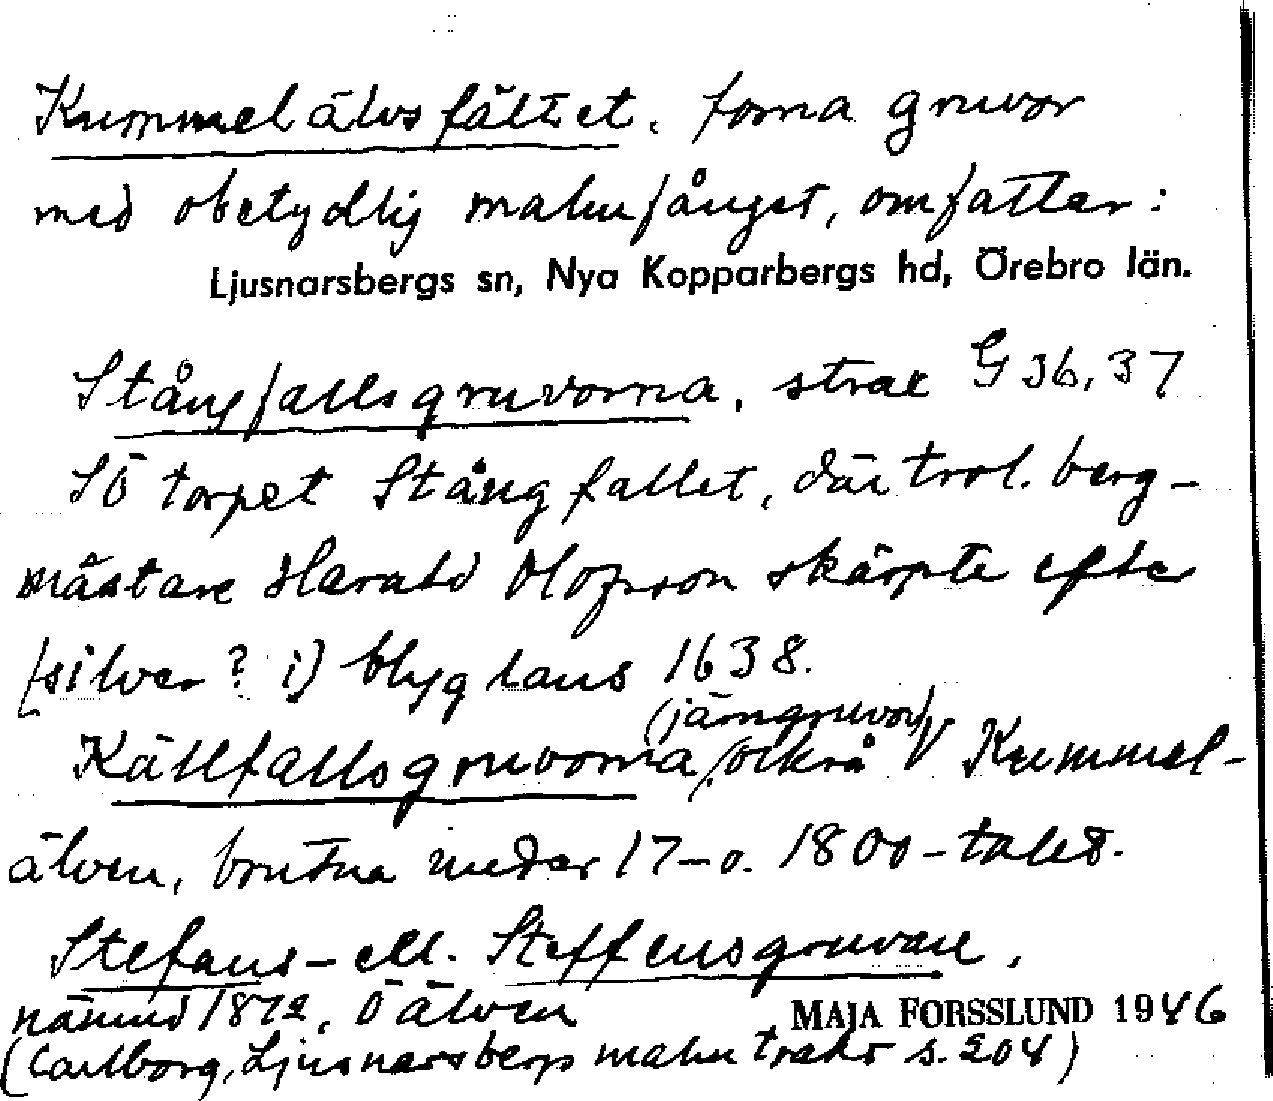 Kummelälvsfältet, forna gruvor
med obetydlig malmfångst, omfattar:
Ljusnarsbergs sn, Nya Kopparbergs hd, Örebro län.
Stångfallsgruvorna, strax G 36, 37
SÖ torpet Stångfallet, där trol. berg-
mästare Harald Olofsson skärpte efter
[silver? i] blyglans 1638.
(järngruvor)
Källfallsgruvorna, V Kummel-
älven, brutna under 17- o. 1800-talet.
Stefans- ell. Steffensgruvan,
nämnd 1872, Ö älven
MAJA FORSSLUND 1946
(Carlborg, Ljusnarsbergs malmtrakt s. 204)